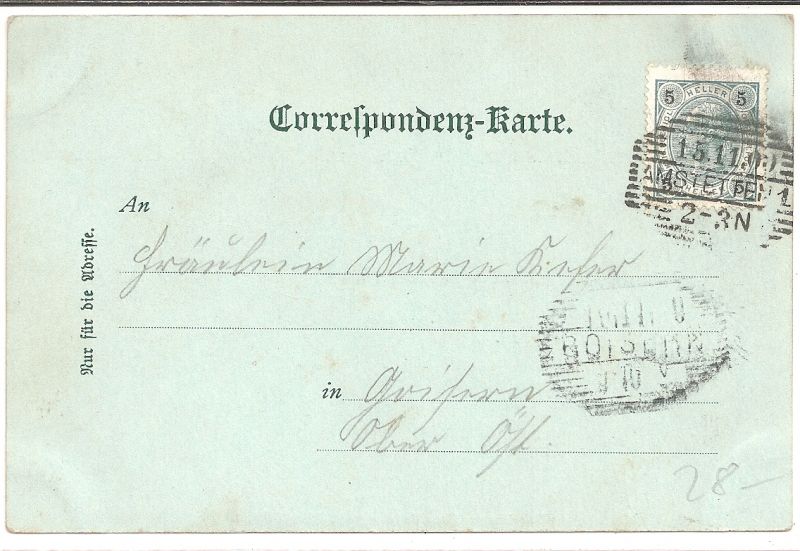 Correspondenz-Karte.
5 HELLER 5
15.11.00
AMSTETTEN 1
2-3N
An
Fräulein Marie Kiefer
GOISERN
in Goisern
Ober Öst.
Nur für die Adresse.
28-